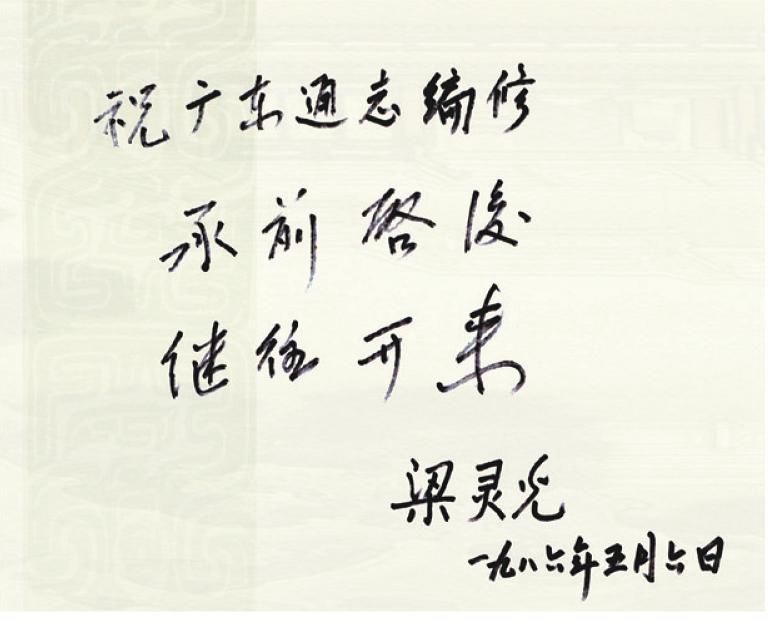 祝广东通志编修
承前启後
继往开来
梁灵光
一九八六年五月六日